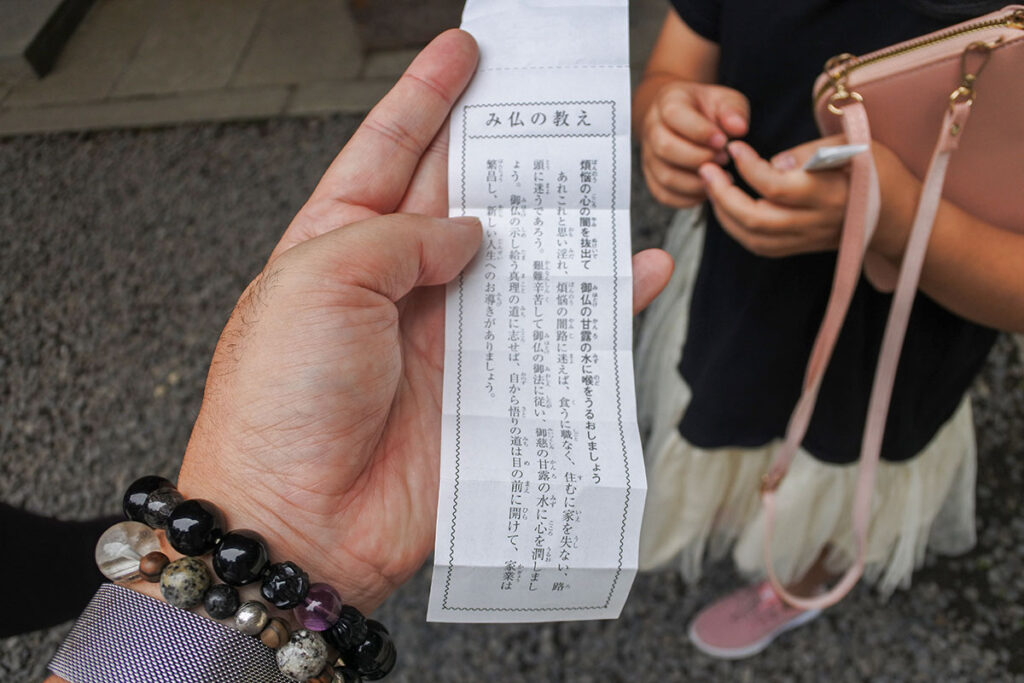 み仏の教え
煩悩の心の闇を抜出て　御仏の甘露の水に喉をうるおしましょう
あれこれと思い淫れ、煩悩の闇路に迷えば、食うに職なく、住むに家を失ない、路
頭に迷うであろう。艱難辛苦して御仏の御法に従い、御慈の甘露の水に心を潤しまし
ょう。御仏の示し給う真理の道に志せば、自から悟りの道は目の前に開けて、家業は
繁昌し、新しい人生へのお導きがありましょう。